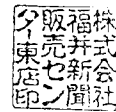 株式会社
福井新聞
販売セン
ター東店印